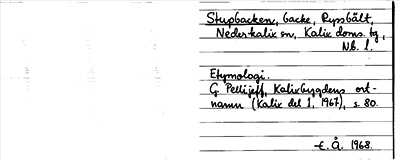 Stupbacken, backe, Ryssbält,
Nederkalix sn, Kalix doms. tg,
Nb. l.
Etymologi.
G Pellijeff, Kalixbygdens ort-
namn (Kalix del 1, 1967), s. 80.
E. Å. 1968.